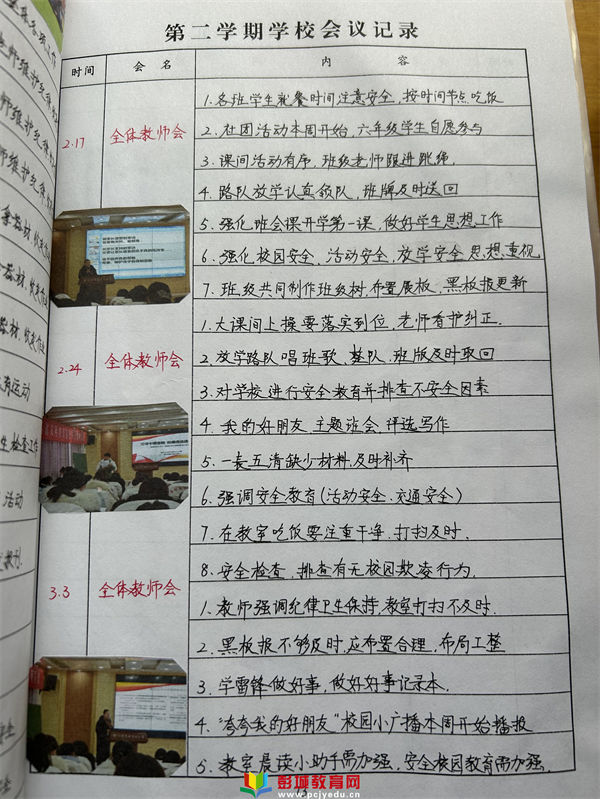 第二学期学校会议记录
时间 会名 内容
2.17 全体教师会
1.各班学生就餐时间注意安全，按时间节点吃饭
2.社团活动本周开始，六年级学生自愿参与
3.课间活动有序，班级老师跟进跳绳.
4.路队放学认真领队，班牌及时送回
5.强化班会课开学第一课，做好学生思想工作
6.强化校园安全、活动安全、放学安全思想重视
7.班级共同制作班级树，布置展板，黑板报更新
2.24 全体教师会
1.大课间上操要落实到位，老师看护纠正.
2.放学路队唱班歌、整队、班版及时取回
3.对学校进行安全教育并排查不安全因素
4.我的好朋友 主题班会、评选写作
5.一表五清缺少材料及时补齐
6.强调安全教育(活动安全、交通安全)
7.在教室吃饭要注重干净，打扫及时.
8.安全检查，排查有无校园欺凌行为.
3.3 全体教师会
1.教师强调纪律卫生保持，教室打扫不及时.
2.黑板报不够及时，应布置合理，布局工整
3.学雷锋做好事，做好好事记录本.
4."夸夸我的好朋友"校园小广播本周开始播报
5.教室晨读小助手需加强，安全校园教育需加强.
彭城教育网
www.pcjyedu.cn